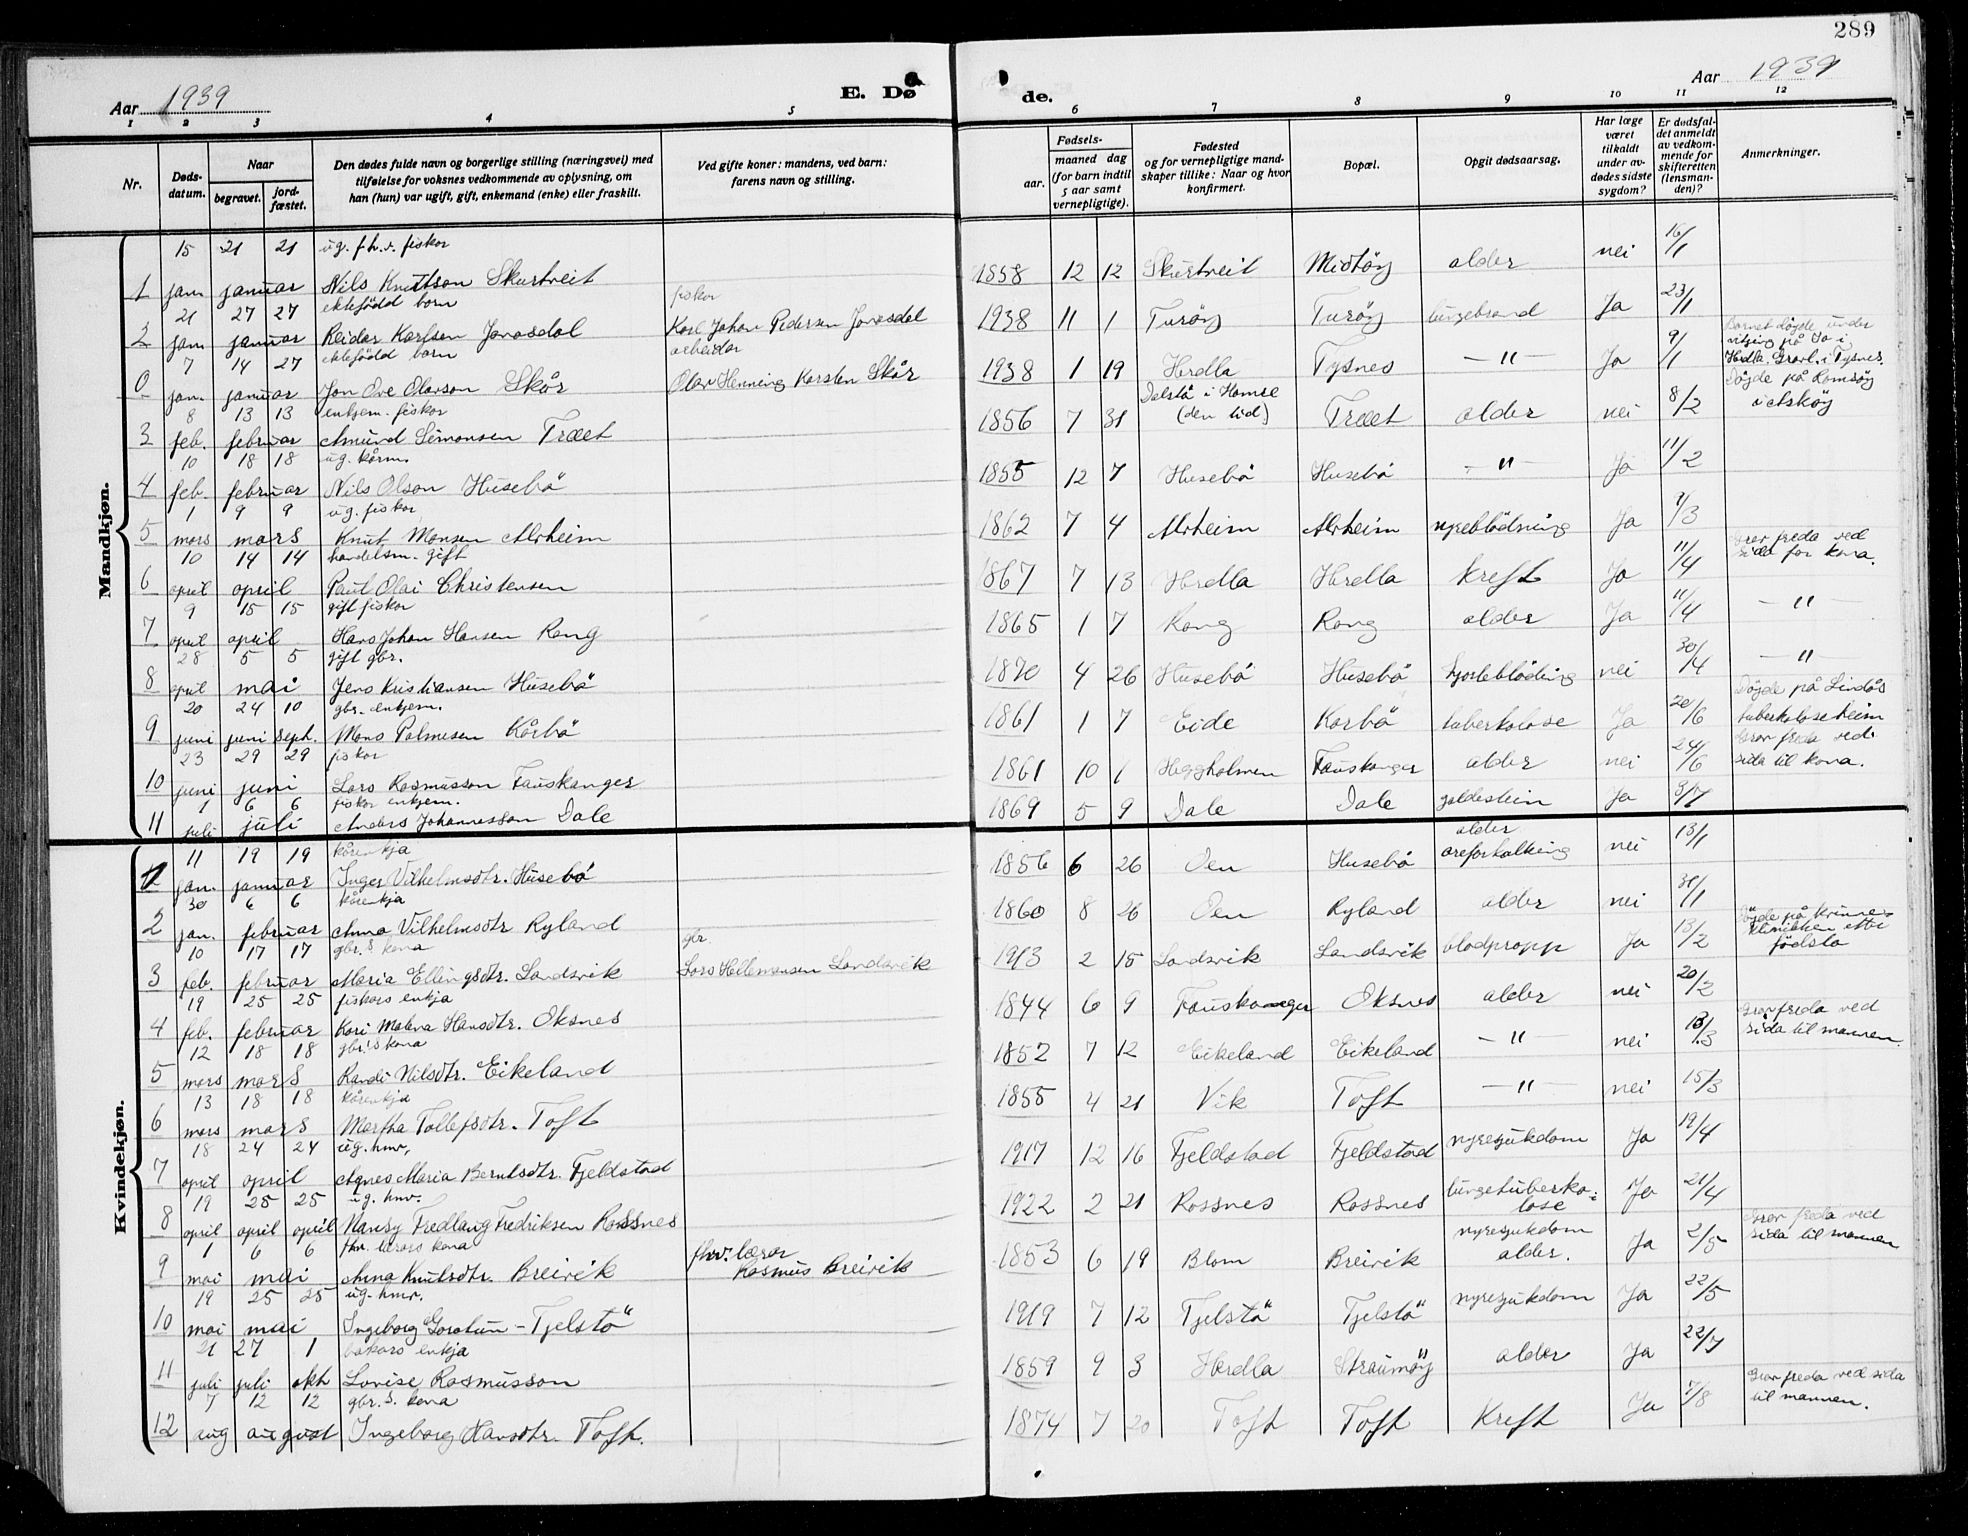 289
Aar 1939
E. Døde.
Aar 1939
1 2 3 4 5 6 7 8 9 10 11 12
Nr.
Døds-datum.
Naar
begravet.
jord-fæstet.
Den dødes fulde navn og borgerlige stilling (næringsvei) med
tilføielse for voksnes vedkommende av oplysning, om
han (hun) var ugift, gift, enkemand (enke) eller fraskilt.
Ved gifte koner: mandens, ved barn:
farens navn og stilling.
Fødsels-
aar.
maaned dag
(for barn indtil
5 aar samt
vernepligtige).
Fødested
og for vernepligtige mand-
skaper tillike: Naar og hvor
konfirmert.
Bopæl.
Opgit dødsaarsag.
Har læge
været
tilkaldt
under av-
dødes sidste
sygdom?
Er dødsfal-
det anmeldt
av vedkom-
mende for
skifteretten
(lensman-
den)?
Anmerkninger.
Mandkjøn.
15 21 21 ug. fh. v. fiskor
1 jan. januar Nils Knutson Skurtveit 1858 12 12 Skurtveit Midtöy alder nei 16/1
21 27 27 ektefödd born fiskor
2 jan. januar Reidar Karlsen Jonasdal Karl Johan Pedersen Jonasdal 1938 11 1 Turöy Turöy lungebrand Ja 23/1
7 14 27 ektefödd born arbeidar
0 jan. januar Jon Ove Olavson Skår Olav Henning Karsten Skår 1938 1 19 Herdla Tysnes —"— Ja 9/1 Barnet döyde under vitjing på Io i Herdla. Gravl. i Tysnes.
8 13 13 enkjem. fiskor
3 feb. februar Amund Simonsen Træet 1856 7 31 Dalstö i Hamre (den tid) Træet alder nei 8/2 Döyde på Romsöy i Asköy
10 18 18 ug. kårm.
4 feb. februar Nils Olson Husebö 1855 12 7 Husebö Husebö —"— Ja 11/2
1 9 9 ug. fiskor
5 mars mars Knut Monsen Alrheim 1862 7 4 Alrheim Alrheim nyreblödning Ja 9/3
10 14 14 handelsm. gift
6 april april Paul Olai Christensen 1867 7 13 Herdla Herdla kreft Ja 11/4 Grav freda ved sida for kona.
9 15 15 gift fiskor
7 april april Hans Johan Hansen Rong 1865 1 7 Rong Rong alder Ja 11/4 —"—
28 5 5 gift gbr.
8 april mai Jens Kristiansen Husebö 1870 4 26 Husebö Husebö hjarteblöding nei 30/4 —"—
20 24 10 gbr. enkjem.
9 juni juni sept. Mons Palmesen Kårbö 1861 1 7 Eide Karbö tuberkolose Ja 20/6 Döyde på Lindås tuberkoloseheim
23 29 29 fiskor
10 juni juni Lars Rasmusson Fauskanger 1861 10 1 Heggholmen Fauskanger alder nei 24/6 Grav freda ved sida til kona.
1 6 6 fiskor enkjem.
11 juli juli Anders Johannesson Dale 1869 5 9 Dale Dale galdestein Ja 3/7
Kvindekjøn.
11 19 19 kårenkja
1 jan. januar Inger Vilhelmsdtr. Husebö 1856 6 26 Oen Husebö alder åreforkalking nei 13/1
30 6 6 kårenkja
2 jan. februar Anna Vilhelmsdtr Ryland 1860 8 26 Oen Ryland alder nei 31/1
10 17 17 gbr.s kona gbr.
3 feb. februar Maria Ellingsdtr. Landsvik Lars Hellemansen Landsvik 1913 2 15 Landsvik Landsvik blodpropp Ja 13/2 Döyde på kvinneklinikken etter födsla
19 25 25 fiskars enkja
4 feb. februar Kari Malena Hansdtr. Oksnes 1844 6 9 Fauskanger Oksnes alder nei 20/2
12 18 18 gbr.s kona
5 mars mars Randi Nilsdtr. Eikeland 1852 7 12 Eikeland Eikeland —"— nei 13/3 Grav freda ved sida til mannen.
13 18 18 kårenkja
6 mars mars Martha Tollefsdtr. Toft 1855 4 21 Vik Toft —"— nei 15/3
18 24 24 ug. hmv.
7 april april Agnes Maria Berntsdtr. Fjeldstad 1917 12 16 Fjeldstad Fjeldstad nyresjukdom Ja 19/4
19 25 25 ug. hmv.
8 april april april Nansy Fredlaug Fredriksen Rossnes 1922 2 21 Rossnes Rossnes lungetuberkolose Ja 21/4
1 6 6 fhv. lærars kona
9 mai mai Anna Knutsdtr. Breivik fhv. lærar Rasmus Breivik 1853 6 19 Blom Breivik nyresjukdom alder. Ja 2/5 Grav freda ved sida til mannen
19 25 25 ug. hmv.
10 mai mai Ingeborg Goratun - Tjelstö 1919 7 12 Tjelstö Tjelstö nyresjukdom Ja 22/5
21 27 1 bakars enkja
11 juli juli okt Lovise Rasmusson 1859 9 3 Herdla Straumöy alder Ja 22/7
7 12 12 gbr.s. kona
12 aug august Ingeborg Hansdtr. Toft. 1874 7 20 Toft Toft Kreft Ja 7/8 Grav freda ved sida til mannen.